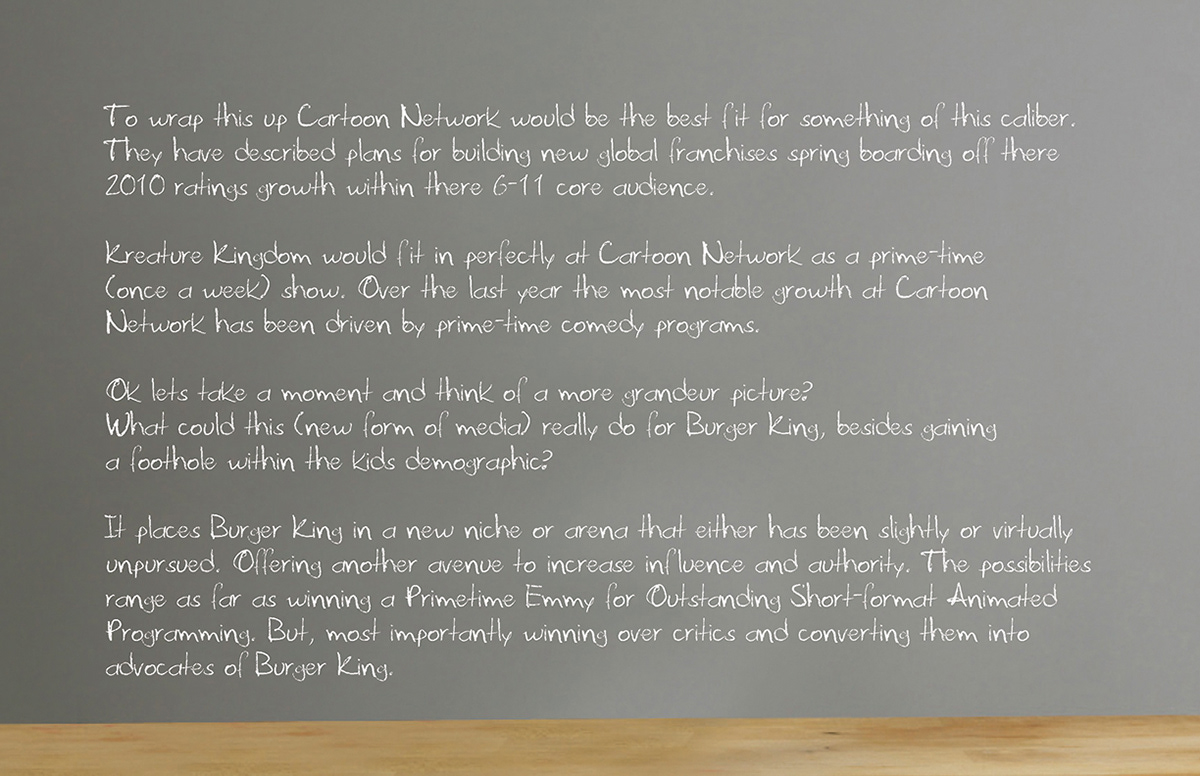 To wrap this up Cartoon Network would be the best fit for something of this caliber.
They have described plans for building new global franchises spring boarding off there
2010 ratings growth within there 6-11 core audience.
Kreature Kingdom would fit in perfectly at Cartoon Network as a prime-time
(once a week) show. Over the last year the most notable growth at Cartoon
Network has been driven by prime-time comedy programs.
Ok lets take a moment and think of a more grandeur picture?
What could this (new form of media) really do for Burger King, besides gaining
a foothole within the kids demographic?
It places Burger King in a new niche or arena that either has been slightly or virtually
unpursued. Offering another avenue to increase influence and authority. The possibilities
range as far as winning a Primetime Emmy for Outstanding Short-format Animated
Programming. But, most importantly winning over critics and converting them into
advocates of Burger King.